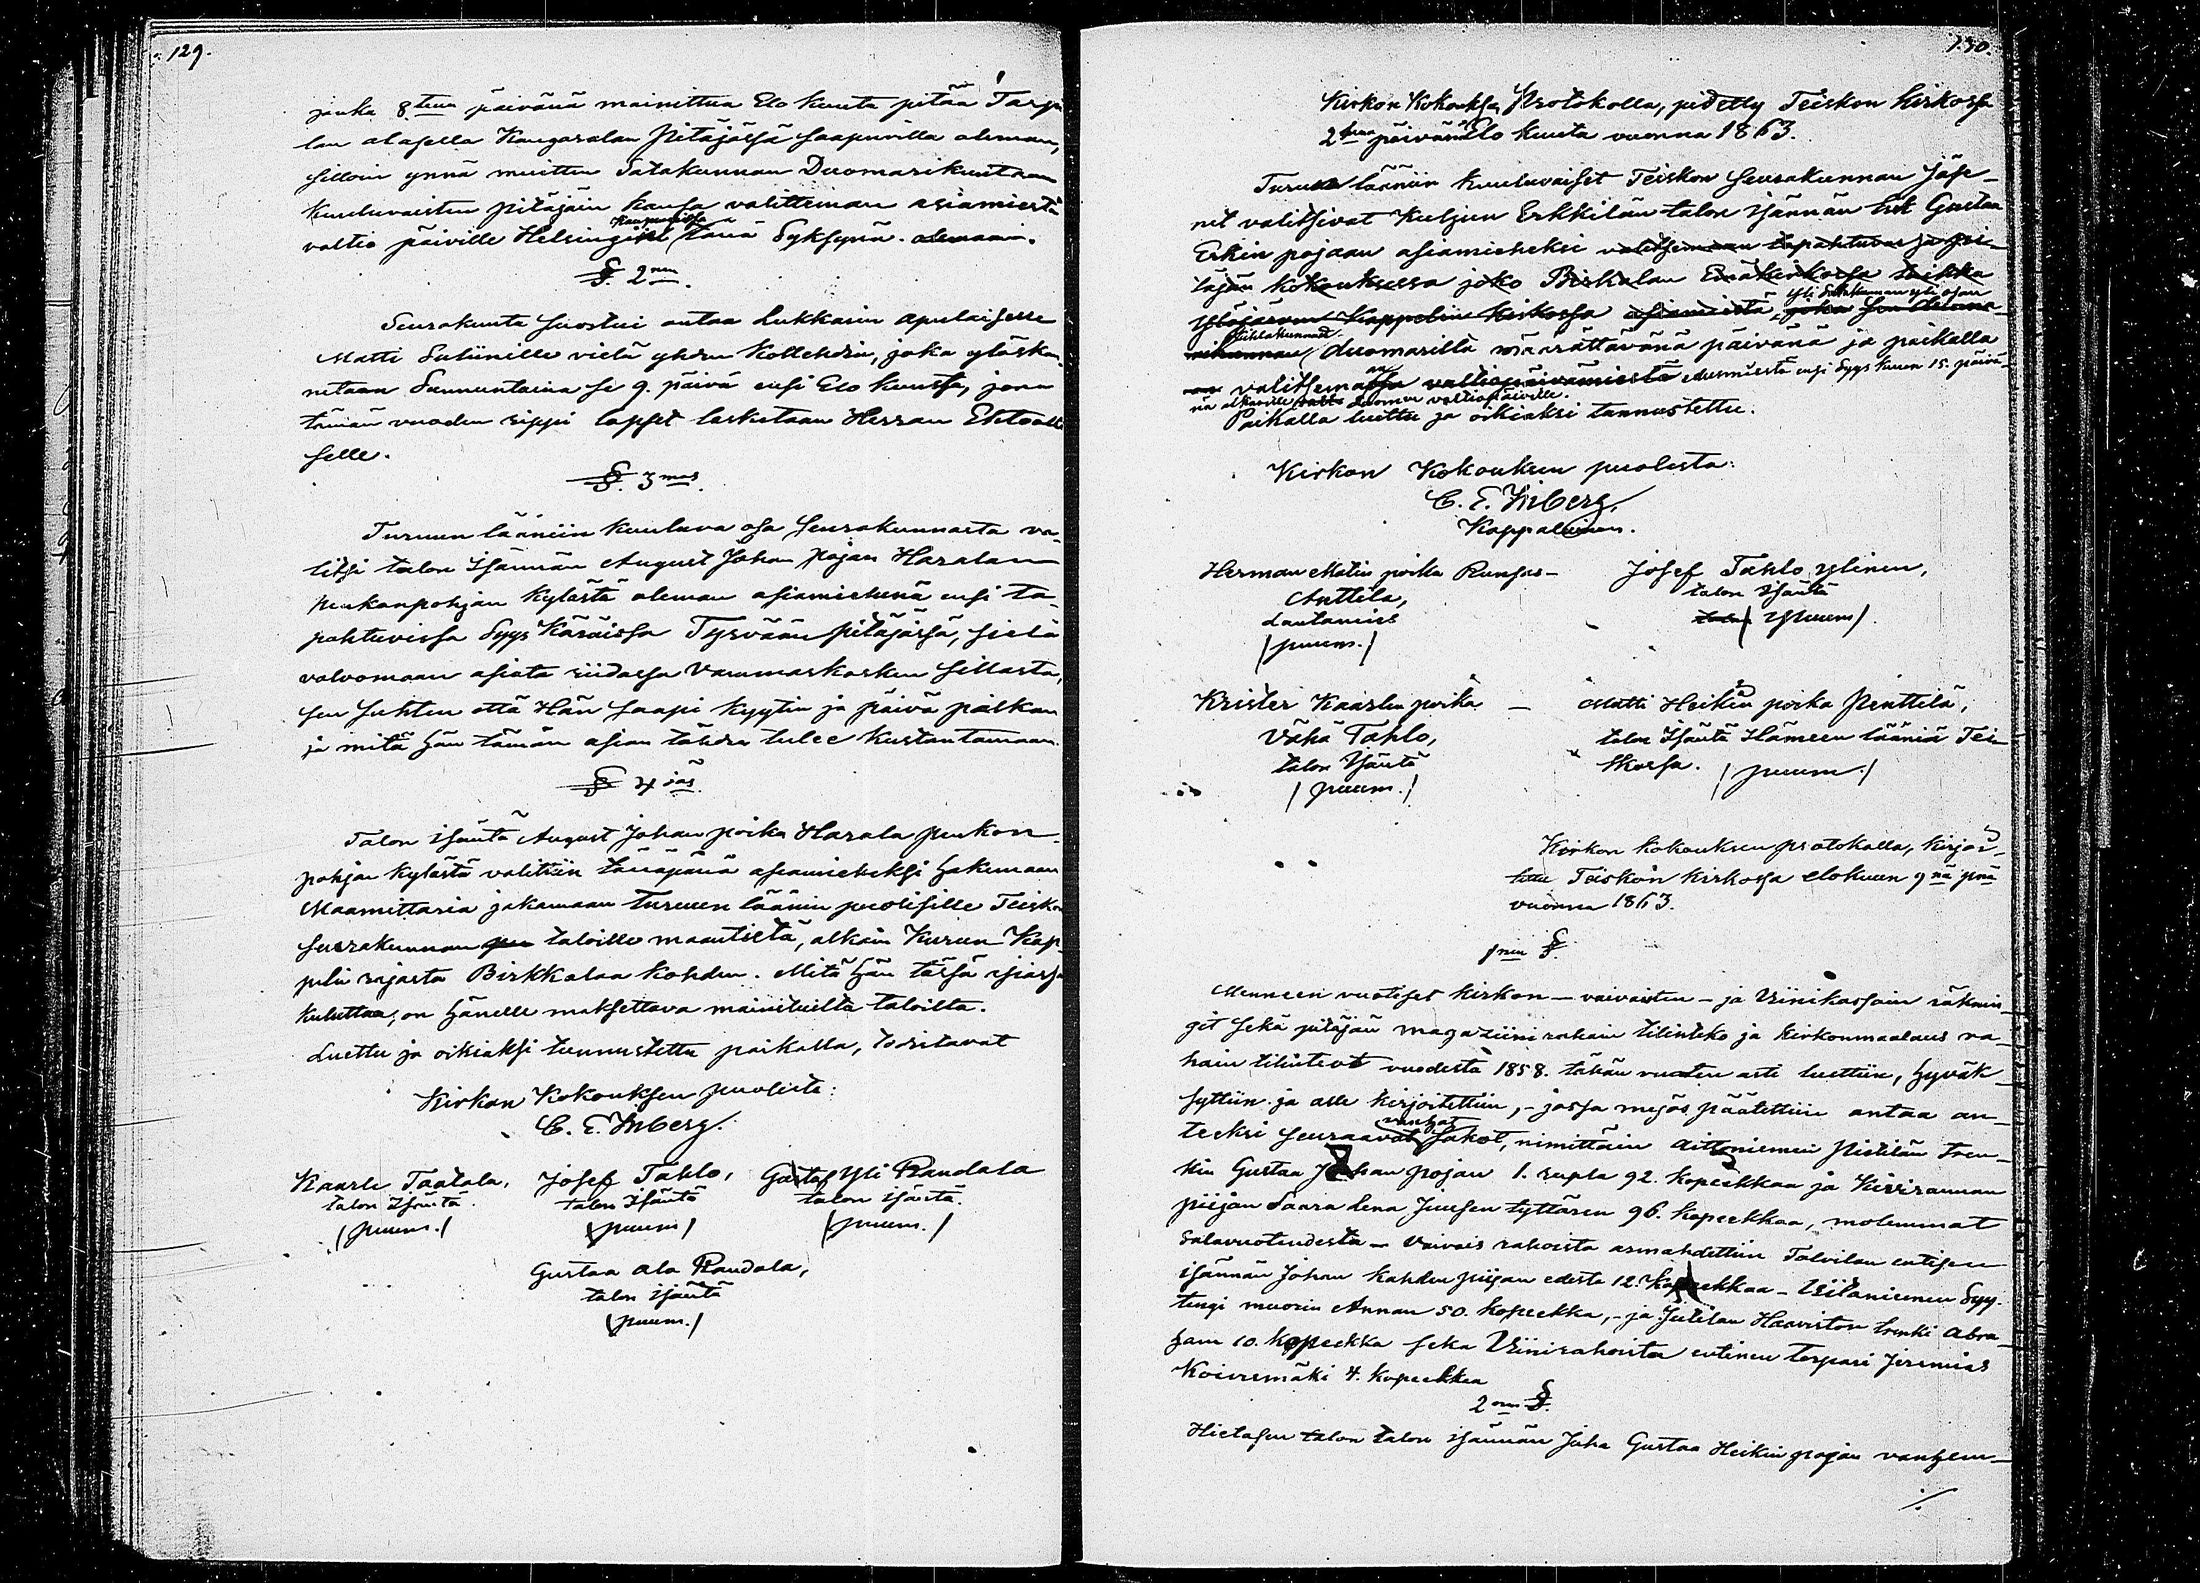 129.
jonka 8 tena päivänä mainittua Elo kuuta pitää Tarpi
lan alasella Kangasalan Pitäjässä saapuvilla oleman,
silloin ynnä muitten Satakunnan Duomarikuntaan
Kuuluvaisten pitäjäin kansa valitteman asiamiestä
valtio päiville Helsingin Kaupungissa tänä Syksynä. olemaan.
§. 2nen.
Seurakunta suostui antaa Lukkarin apulaiselle
Matti Suliinille vielä yhden Kollehdin, joka yläskan
netaan Sunnuntaina se 9. päivä ensi Elo kuussa, jona
tämän vuoden rippi lapset lasketaan Herran Ehtoolli
selle.
§. 3mas.
Turuun lääniin kuuluva osa seurakunnasta va-
litsi talon Isännän August Johan pojan Haralan
Peukonpohjan kylästä oleman asiamiehenä ensi ta-
pahtuvissa Syys Käräissä Tyrvään pitäjässä, sielä
valvomaan asiata riidassa Vammaskosken sillasta,
sen suhten että Hän saapi kyytin ja päivä palkan
ja mitä hän tämän asian tähden tulee kustantamaan.
§ 4 jäs
Talon isäntä August Johan poika Harala Peukon-
pohjan kylästä valittiin tänäpänä asiamieheksi hakemaan
Maamittaria jakamaan Turuun läänin puolisille Teiskon
seurakunnan taloille maantietä, alkain Kurun Kap-
pelin rajasta Birkkalaa kohden. Mitä hän tässä asiassa
kuluttaa, on hänelle maksettava mainituilta taloilta.
Luettu ja oikiaksi tunnustettu paikalla, todistavat
Kirkon Kokouksen puolesta:
C. E. Inberg.
Kaarle Taatala, Josef Tahlo, Gustaf Yli Randala
talon Isäntä. talon Isäntä talon isäntä.
(puum.) (puum) (puum.)
Gustaa Ala Randala,
talon isäntä
(puum.)
130.
Kirkon Kokouksen Protokolla, pidetty Teiskon kirkossa
2 sena päivänä Elo kuuta vuonna 1863.
Turun lääniin kuuluvaiset Teiskon seurakunnan Jäse-
net valitsivat Kuljun Erkkilän talon isännän Erk Gustaa
Erkin pojaan asiamieheksi valitsemaan tapahtuvassa pi-
täjän kokouksessa joko Birkalan Emäkirkossa taikka
Ylöjärven Kappelin kirkossa asiamiestä, joka sen
yli Satakunnan yli osan
Kihlakunnan duomarilta määrättävänä päivänä ja paikalla
valitseman valtiopäivämiestä edusmiestä ensi Syys kuun 15. päivä-
nä alkaville Suomen valtiopäiville.
Paikalla luettu ja oikiaksi tunnustettu.
Kirkon Kokouksen puolesta:
C. E. Inberg,
Kappalainen.
Herman Matin poika Runsas- Josef Tahlo ylinen,
Anttila, talon Isäntä
Lautamies (puum).
(puum.)
Krister Kaarlen poika - Matti Heikin poika Penttilä,
Vähä Tahlo, talon Isäntä Hämeen lääniä Tei-
talon Isäntä skossa. (puum.)
(puum.)
Kirkon kokouksen protokolla, kirjoi-
tettu Teiskon kirkossa elokuun 9nä pnä
vuonna 1863.
1nen §.
Menneen vuotiset kirkon - vaivaisten - ja Viinikassain räknin-
git sekä pitäjän magaziini rahain tilinteko ja kirkonmaalaus ra-
hain tilinteot vuodesta 1858. tähän vuoteen asti luettiin, hyväk-
syttiin ja alle kirjoitettiin, - jossa myös päätettiin antaa an-
teeksi seuraavat vanhat sakot, nimittäin Aittoniemen Pietilän ren-
kin Gustaa Johan pojan 1. rupla 92. kopeekkaa ja Kivirannan
piijan Saara Lena Juusen tyttären 96. kopeekkaa, molemmat
salavuoteudesta - Vaivais rahoista armahdettiin Talvilan entisen
isännän Johan kahden piijan edestä 12. Kopeekkaa - Viitaniemen Syy-
tingi muorin Annan 50. kopeekka, - ja Jutilan Haaviston renki Abra-
ham 10. kopeekka sekä Viinirahoista entinen torpari Jeremias
Koivumäki 4. kopeekkaa
2nen §.
Hietasen talon talon isännän Juha Gustaa Heikin pojan vanhem-
./.